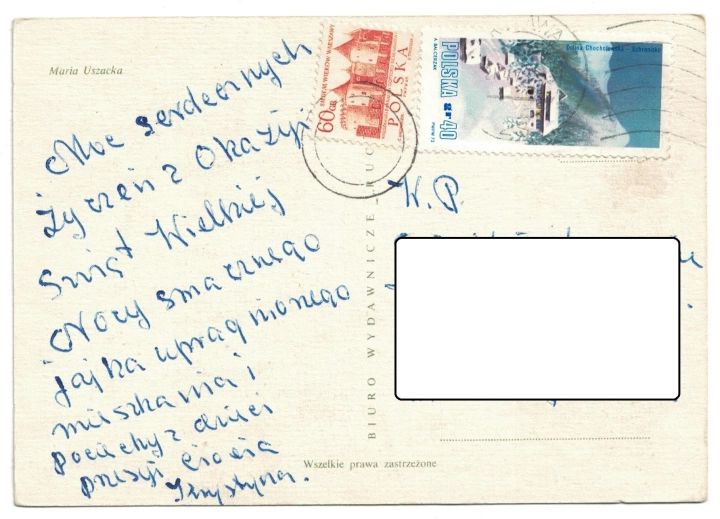 Maria Uszacka
Moc serdecznych
życzeń z Okazyji
Świąt Wielkiej
Nocy smacznego
jajka upragnionego
mieszkania i
pociechy z dzieci
przesyi ciocia
Krystyna.
SZLAKIEM WIEKÓW WARSZAWY
60GR
POLSKA
A. BALCERZAK
POLSKA
gr 40
PWPW 73
Dolina Chochołowska - Schronisko
W.P.
BIURO WYDAWNICZE "RUCH"
Wszelkie prawa zastrzeżone